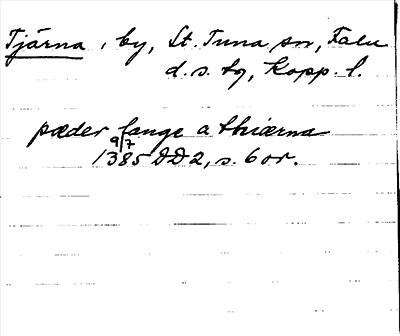 Tjärna, by, St. Tuna sn, Falu
d.s. tg, Kopp. l.
pæder lange a thiærna
9/7
1385 DD2, s. 6 or.